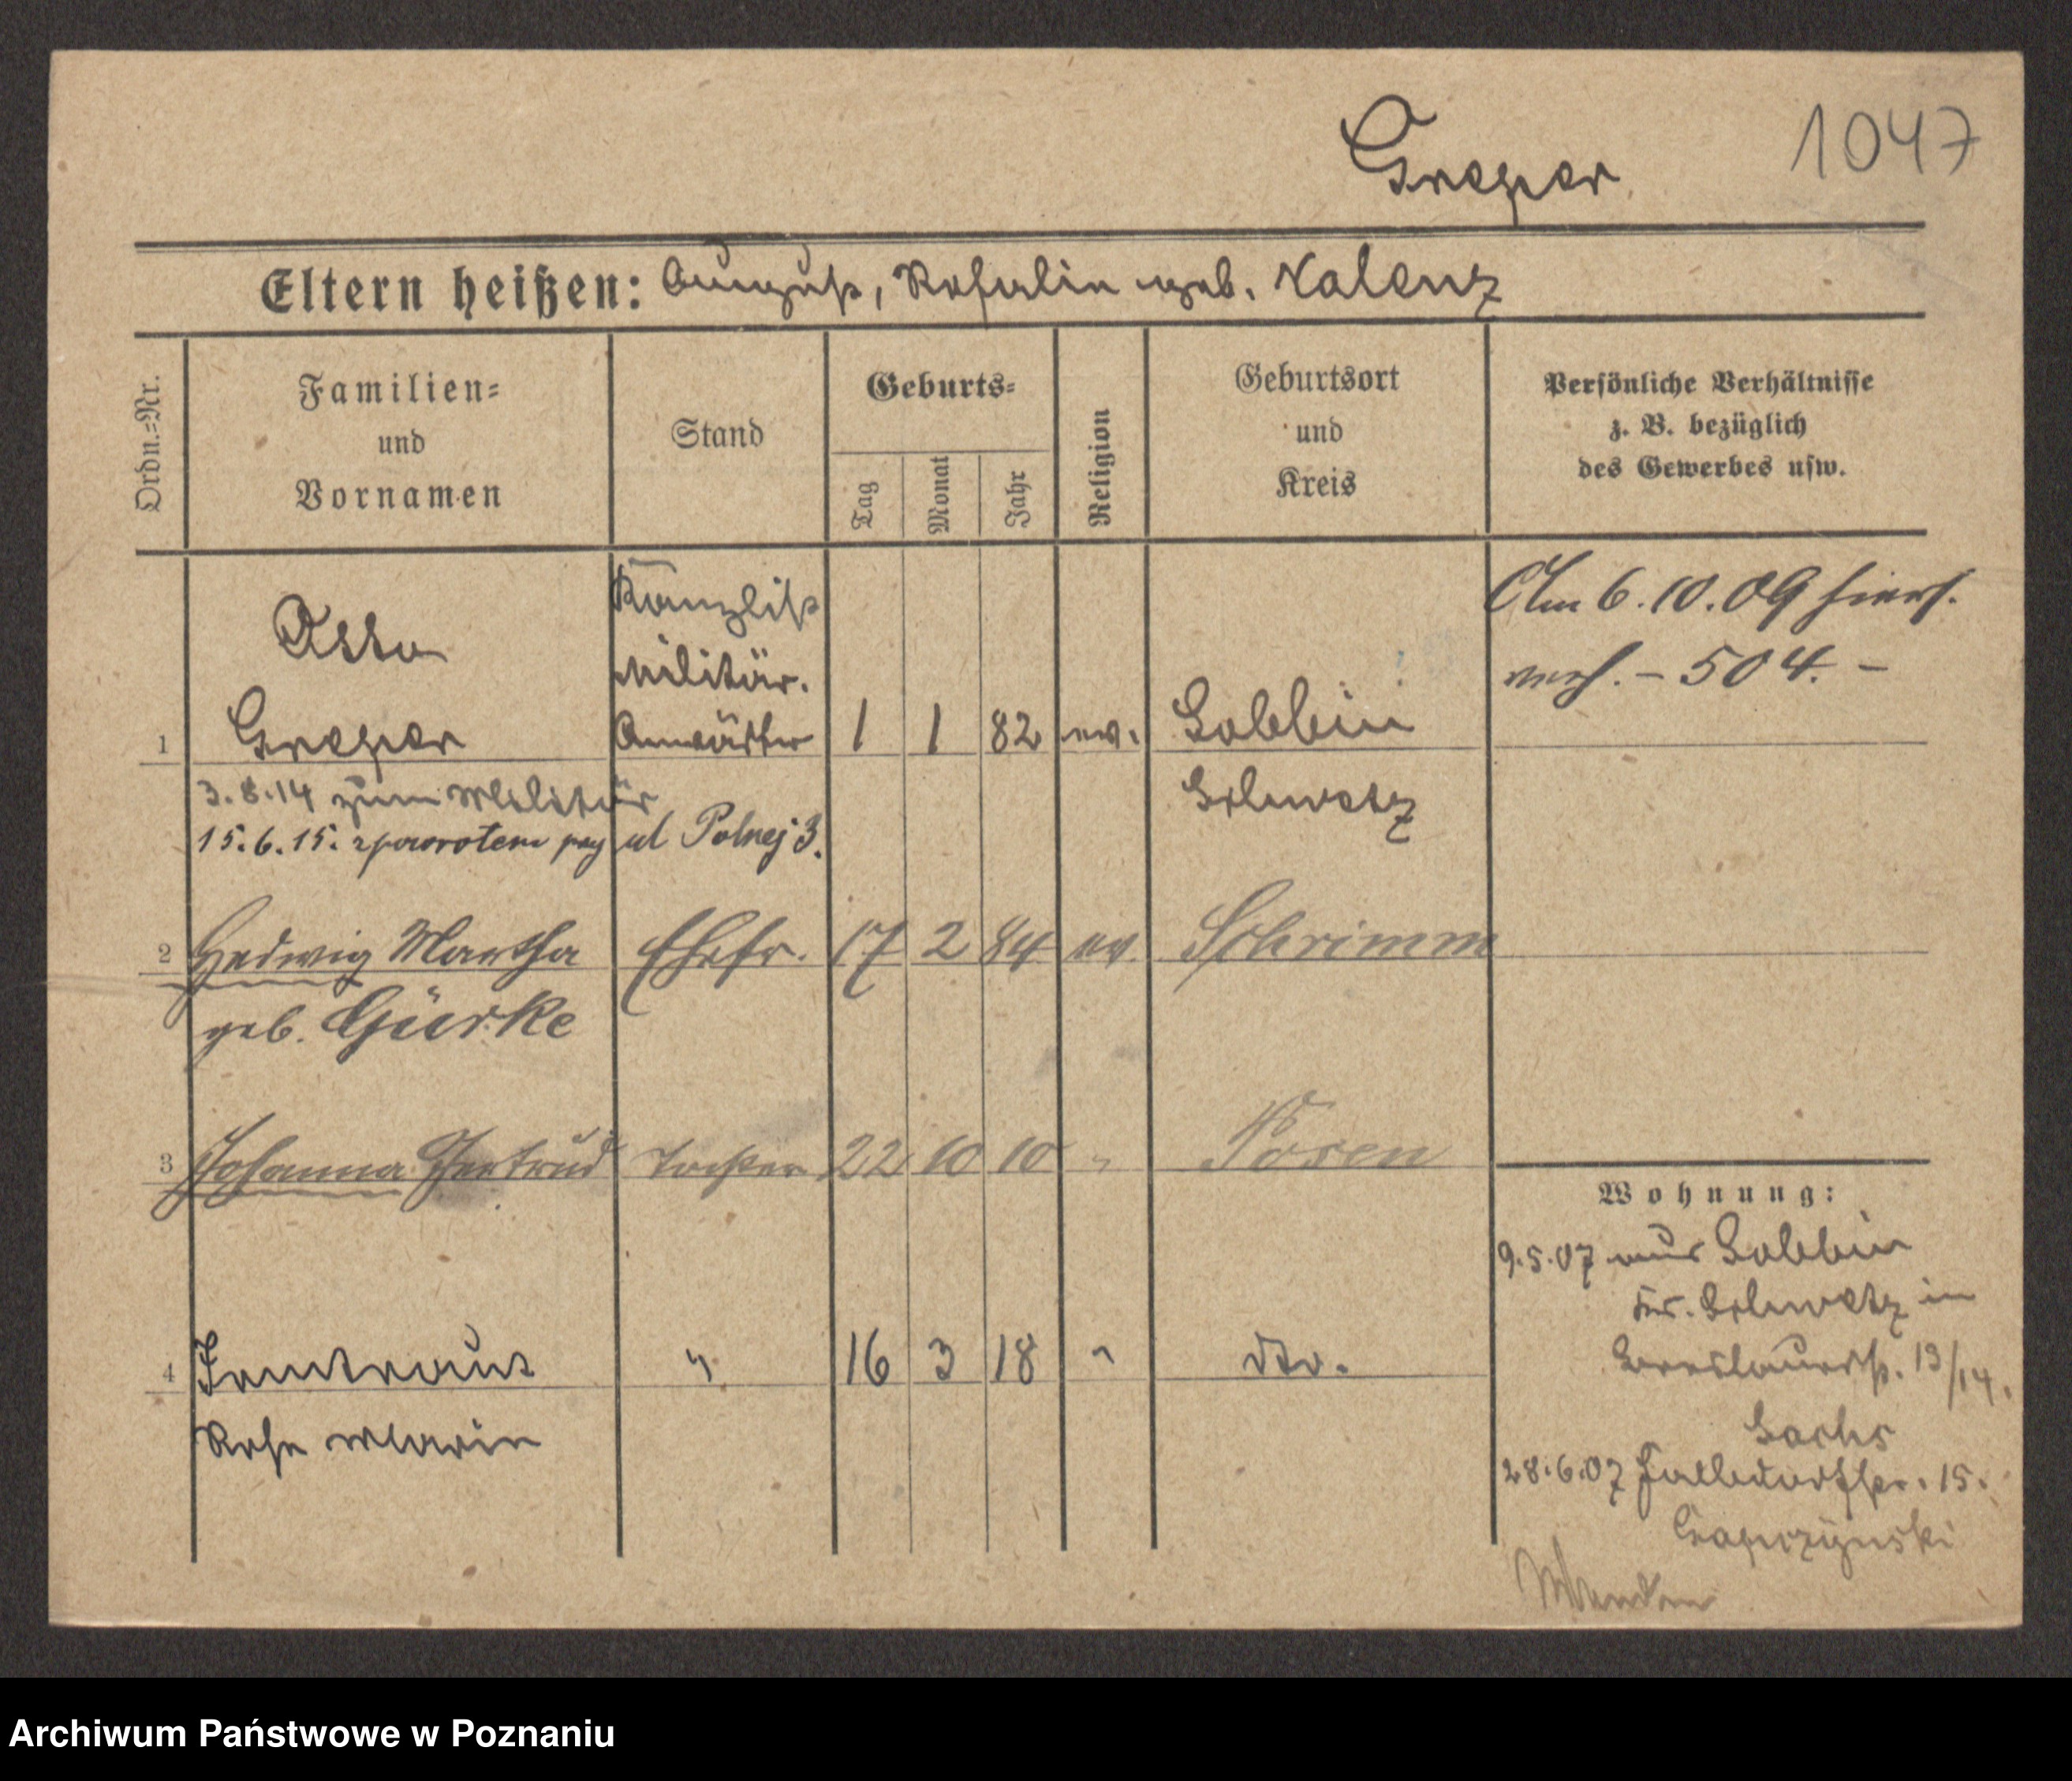 1047
Greger
Eltern heißen: August, Rosalie geb. Valenz
Ordn.=Nr.
Familien=
und
Vornamen
Stand
Geburts=
Tag
Monat
Jahr
Religion
Geburtsort
und
Kreis
Persönliche Verhältnisse
z. B. bezüglich
des Gewerbes usw.
Otto
Kanzlist
Militär.
1 Greger Anwärter 1 1 82 ev. Gellen
Schwetz
Am 6.10.09 hiers.
verh. – 504. –
3.8.14 zum Militär
15.6.15. zpowrotem przy ul Polnej 3.
2 Hedwig Martha Ehefr. 17 2 84 ev. Schrimm
geb. Gürke
3 Johanna Gertrud Tochter 22 10 10 " Posen
4 Irmtraut " 16 3 18 " dto.
Rose Marie
Wohnung:
9.5.07 aus
Kr. Schwetz in
Breslauerstr. 13/14.
Sachs
28.6.07 str. 15.